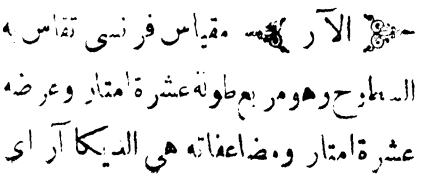 الآر مقياس فرنسى تقاس به
السطوح وهو مربع طوله عشرة امتار وعرضه
عشرة امتار ومضاعفاته هي الديكا آر اى